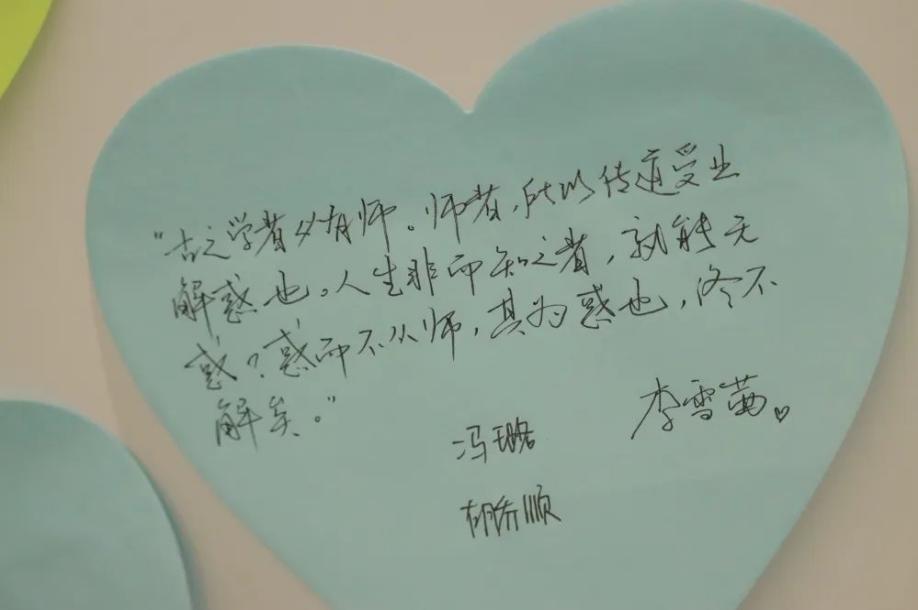 "古之学者必有师。师者，所以传道受业
解惑也。人生非而知之者，孰能无
惑？惑而不从师，其为惑也，终不
解矣。"
冯璐
李雪茜
胡乔顺